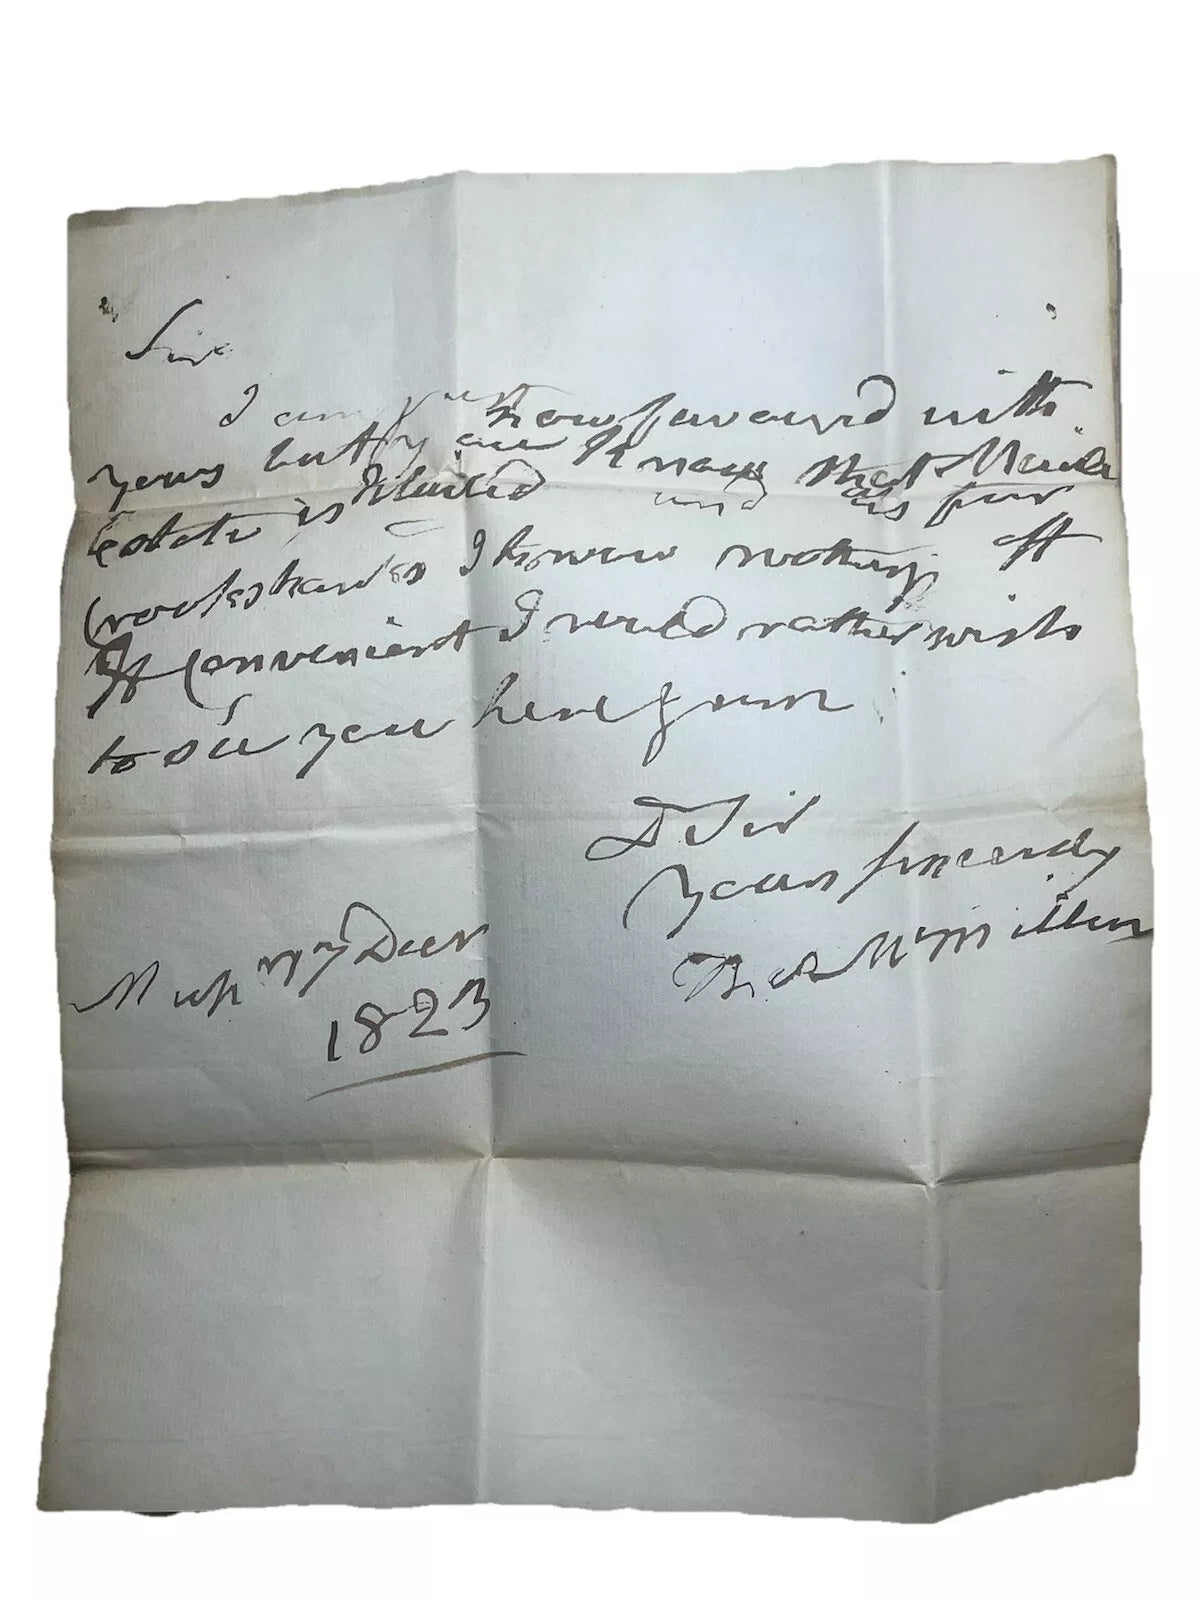 Sir
I am just now favoured with
yours but you know that
Estate is and as for
I know nothing off
If Convenient I would rather wish
to see you here I am
D Sir
Yours sincerely
McMillan
Decr
1823